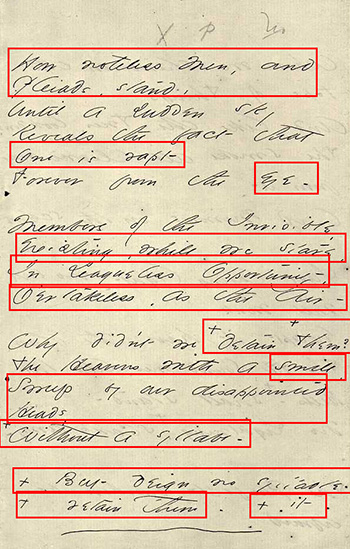 x p
How noteless Men, and
Pleiads, stand,
Until a sudden sky
Reveals the fact that
One is rapt
Forever from the
Eye -
Members of the Invisible,
Existing, while we stare,
In Leagueless Opportunity,
O'ertakeless, as the Air -
Why didn't we + detain + Them?
The Heavens with a smile,
Sweep by our disappointed
Heads
+ Without a syllable -
+ But deign no syllable -
+ detain Them + it -